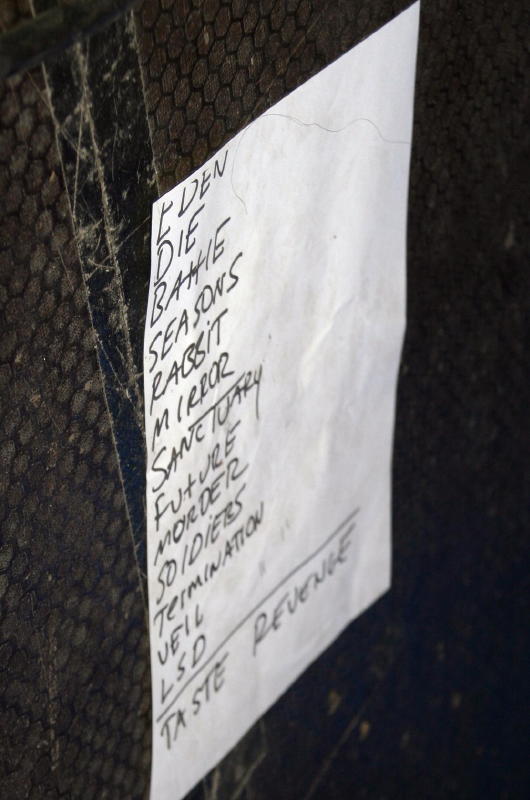 EDEN
DIE
BATTLE
SEASONS
RABBIT
MIRROR
SANCTUARY
FUTURE
MORDER
SOLDIERS
TERMINATION
VEIL
LSD
TASTE REVENGE